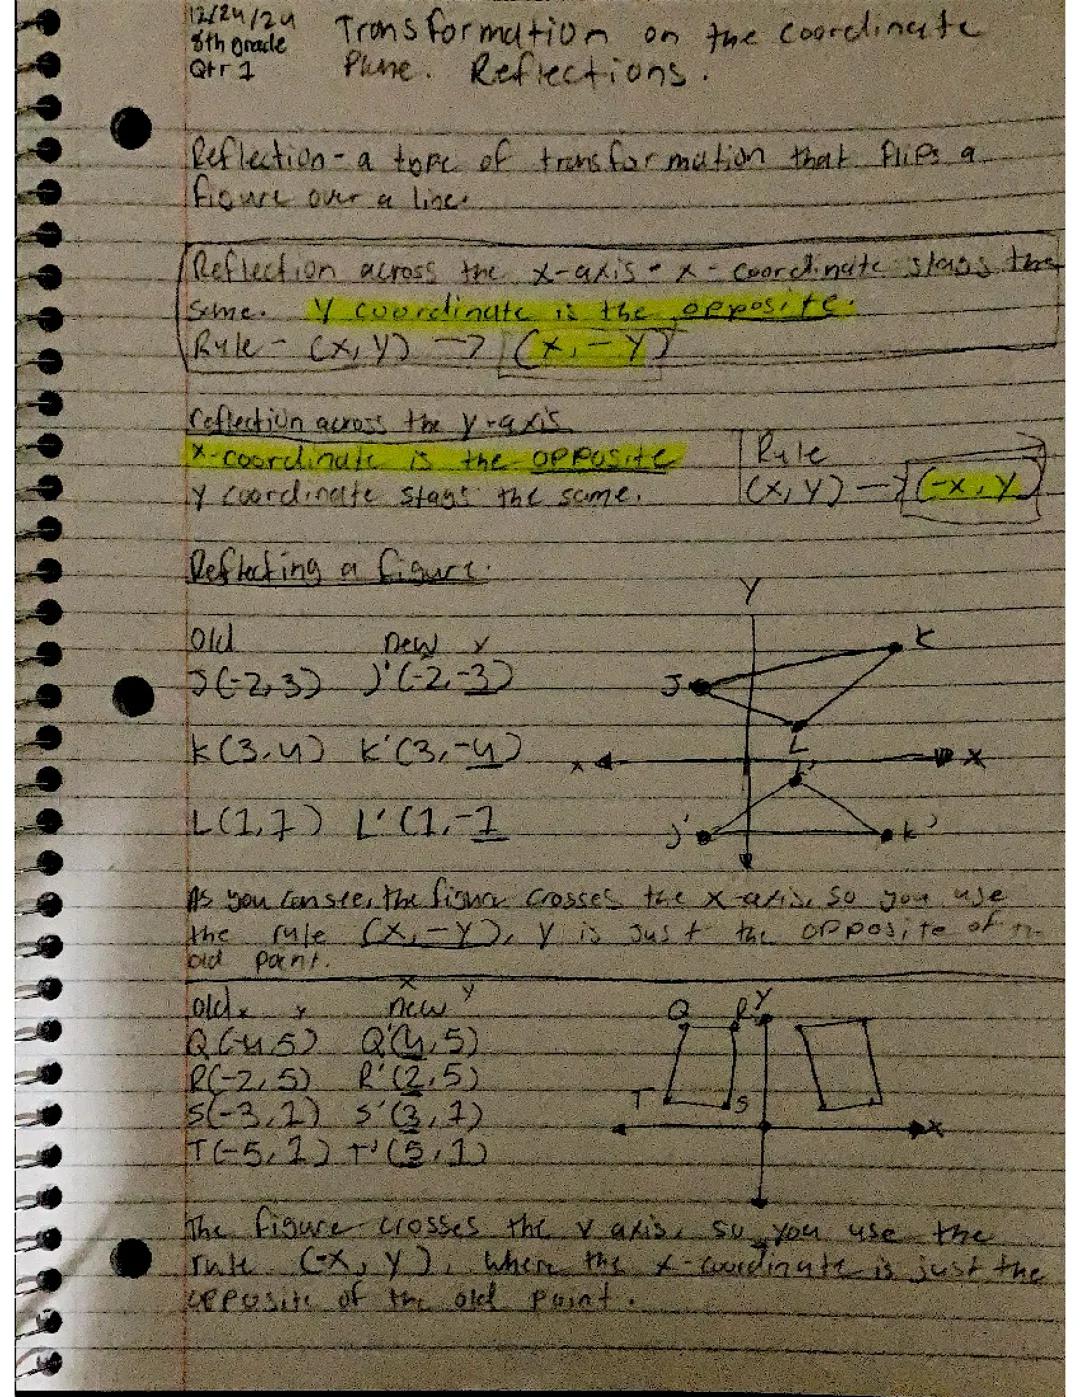 12/24/24
8th grade
Qtr 1
Transformation on the coordinate
Plane. Reflections.
Reflection - a type of transformation that flips a
figure over a line.
Reflection across the x-axis - x-coordinate stays the
same. Y coordinate is the opposite.
Rule - (x, y) → (x, -y)
reflection across the y-axis
x-coordinate is the opposite
y coordinate stays the same.
Rule
(x, y) → (-x, y)
Reflecting a figure.
Old new y
J(-2,3) J'(-2,-3)
K(3,4) K'(3,-4)
L(1,1) L'(1,-1
Y
K
J
L
x x
L'
J' K'
As you can see, the figure crosses the x-axis, so you use
the rule (x, -y), y is just the opposite of
old point.
x y
old x y new
Q(-4,5) Q'(4,5)
R(-2,5) R'(2,5)
S(-3,1) S'(3,1)
T(-5,1) T'(5,1)
Q R Y
T S
x
The figure crosses the y axis, so you use the
rule (-x, y), where the x-coordinate is just the
opposite of the old point.